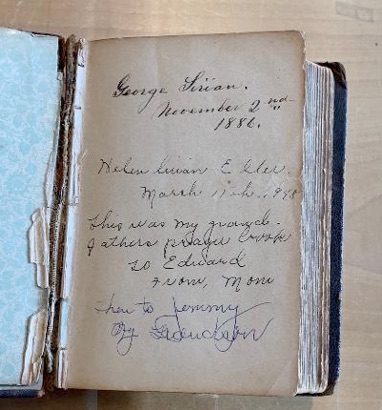 George Sirian.
November 2nd
1886.
Helen Sirian Elder.
March 11th, 1948
This was my grand-
fathers prayer book
to Edward
From, Mom
then to Jemmy
My Grandson